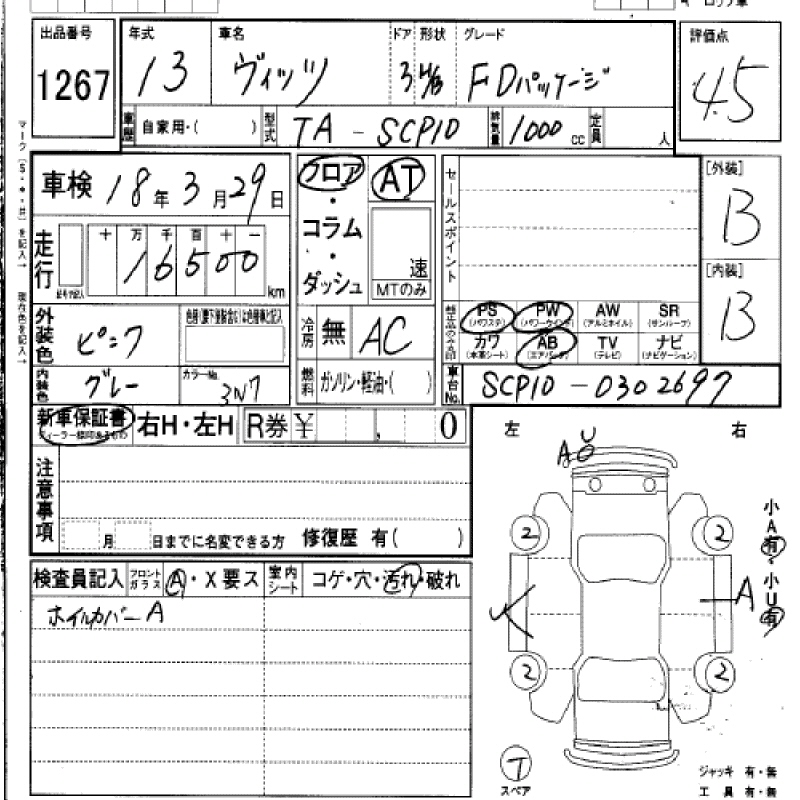 出品番号 年式 車名 ドア 形状 グレード 評価点
1267 13 ヴィッツ 3 H/B FDパッケージ 4.5
車歴 自家用・( ) 型式 TA - SCP10 排気量 1000 cc 定員 人
車検 18年 3月 29日 フロア・コラム・ダッシュ AT 速 MTのみ セールスポイント [外装] B
走行 十 万 千 百 十 一
16500 km [内装] B
外装色 ピンク 冷房 無 AC PS (パワステ) PW (パワーウインド) AW (アルミホイル) SR (サンルーフ)
カワ (本革シート) AB (エアバック) TV (テレビ) ナビ (ナビゲーション)
内装色 グレー カラーNo. 3N7 燃料 ガソリン・軽油・( ) 車台No. SCP10 - 0302697
新車保証書 右H・左H R券 ¥ , 0 左 右
注意事項
月 日までに名変できる方 修復歴 有( )
検査員記入 フロントガラス A・X要ス 室内シート コゲ・穴・汚れ・破れ
ホイルカバーA
A U
2 2
A
2 2
小A有・小U有
T
スペア
ジャッキ 有・無
工具 有・無